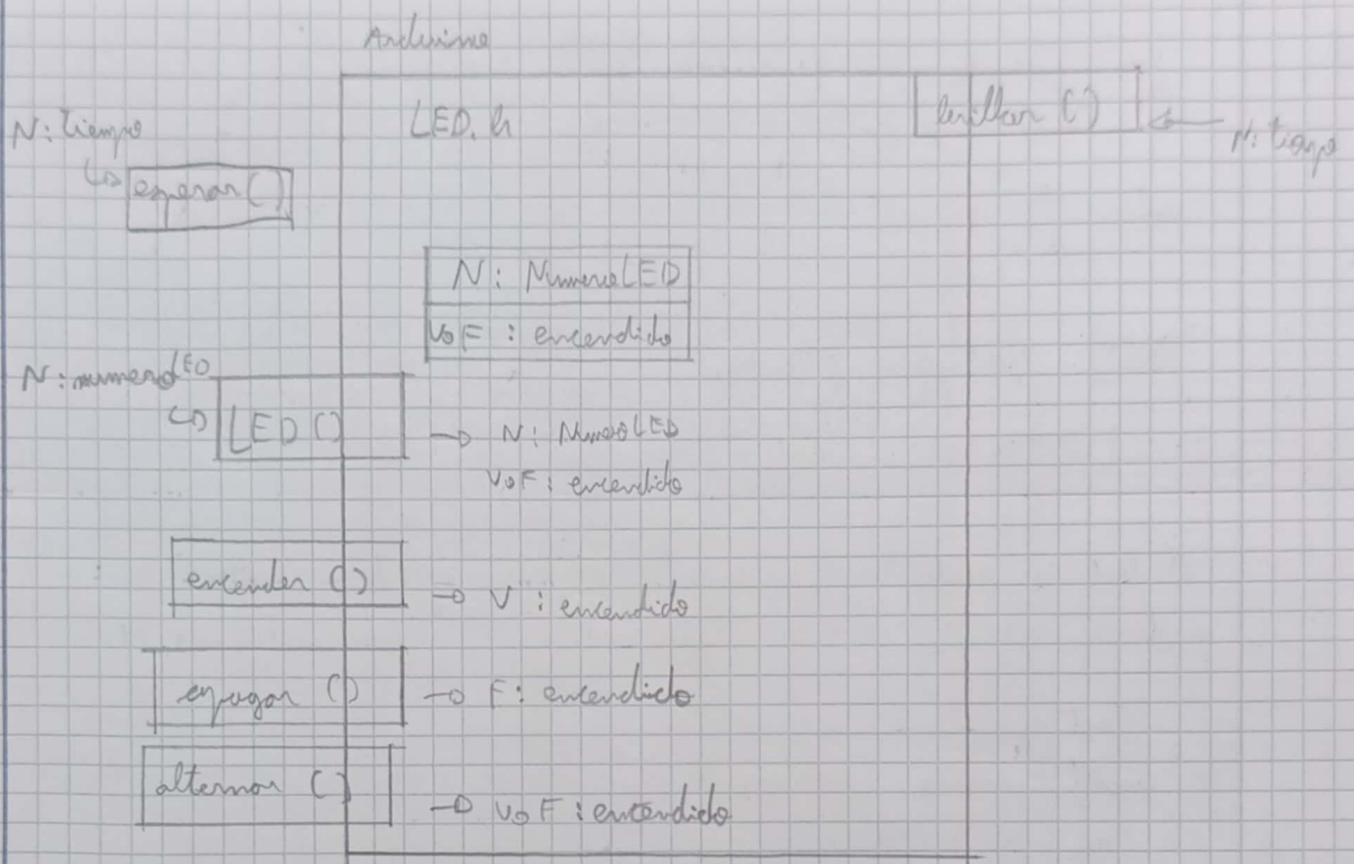 Arduino
N: tiempo
LED.h
brillar ()
N: tiempo
esperar ()
N: NumeroLED
VoF : encendido
N: numeroLED
LED ()
N: NumeroLED
VoF: encendido
encender ()
V : encendido
apagar ()
F: encendido
alternar ()
VoF : encendido